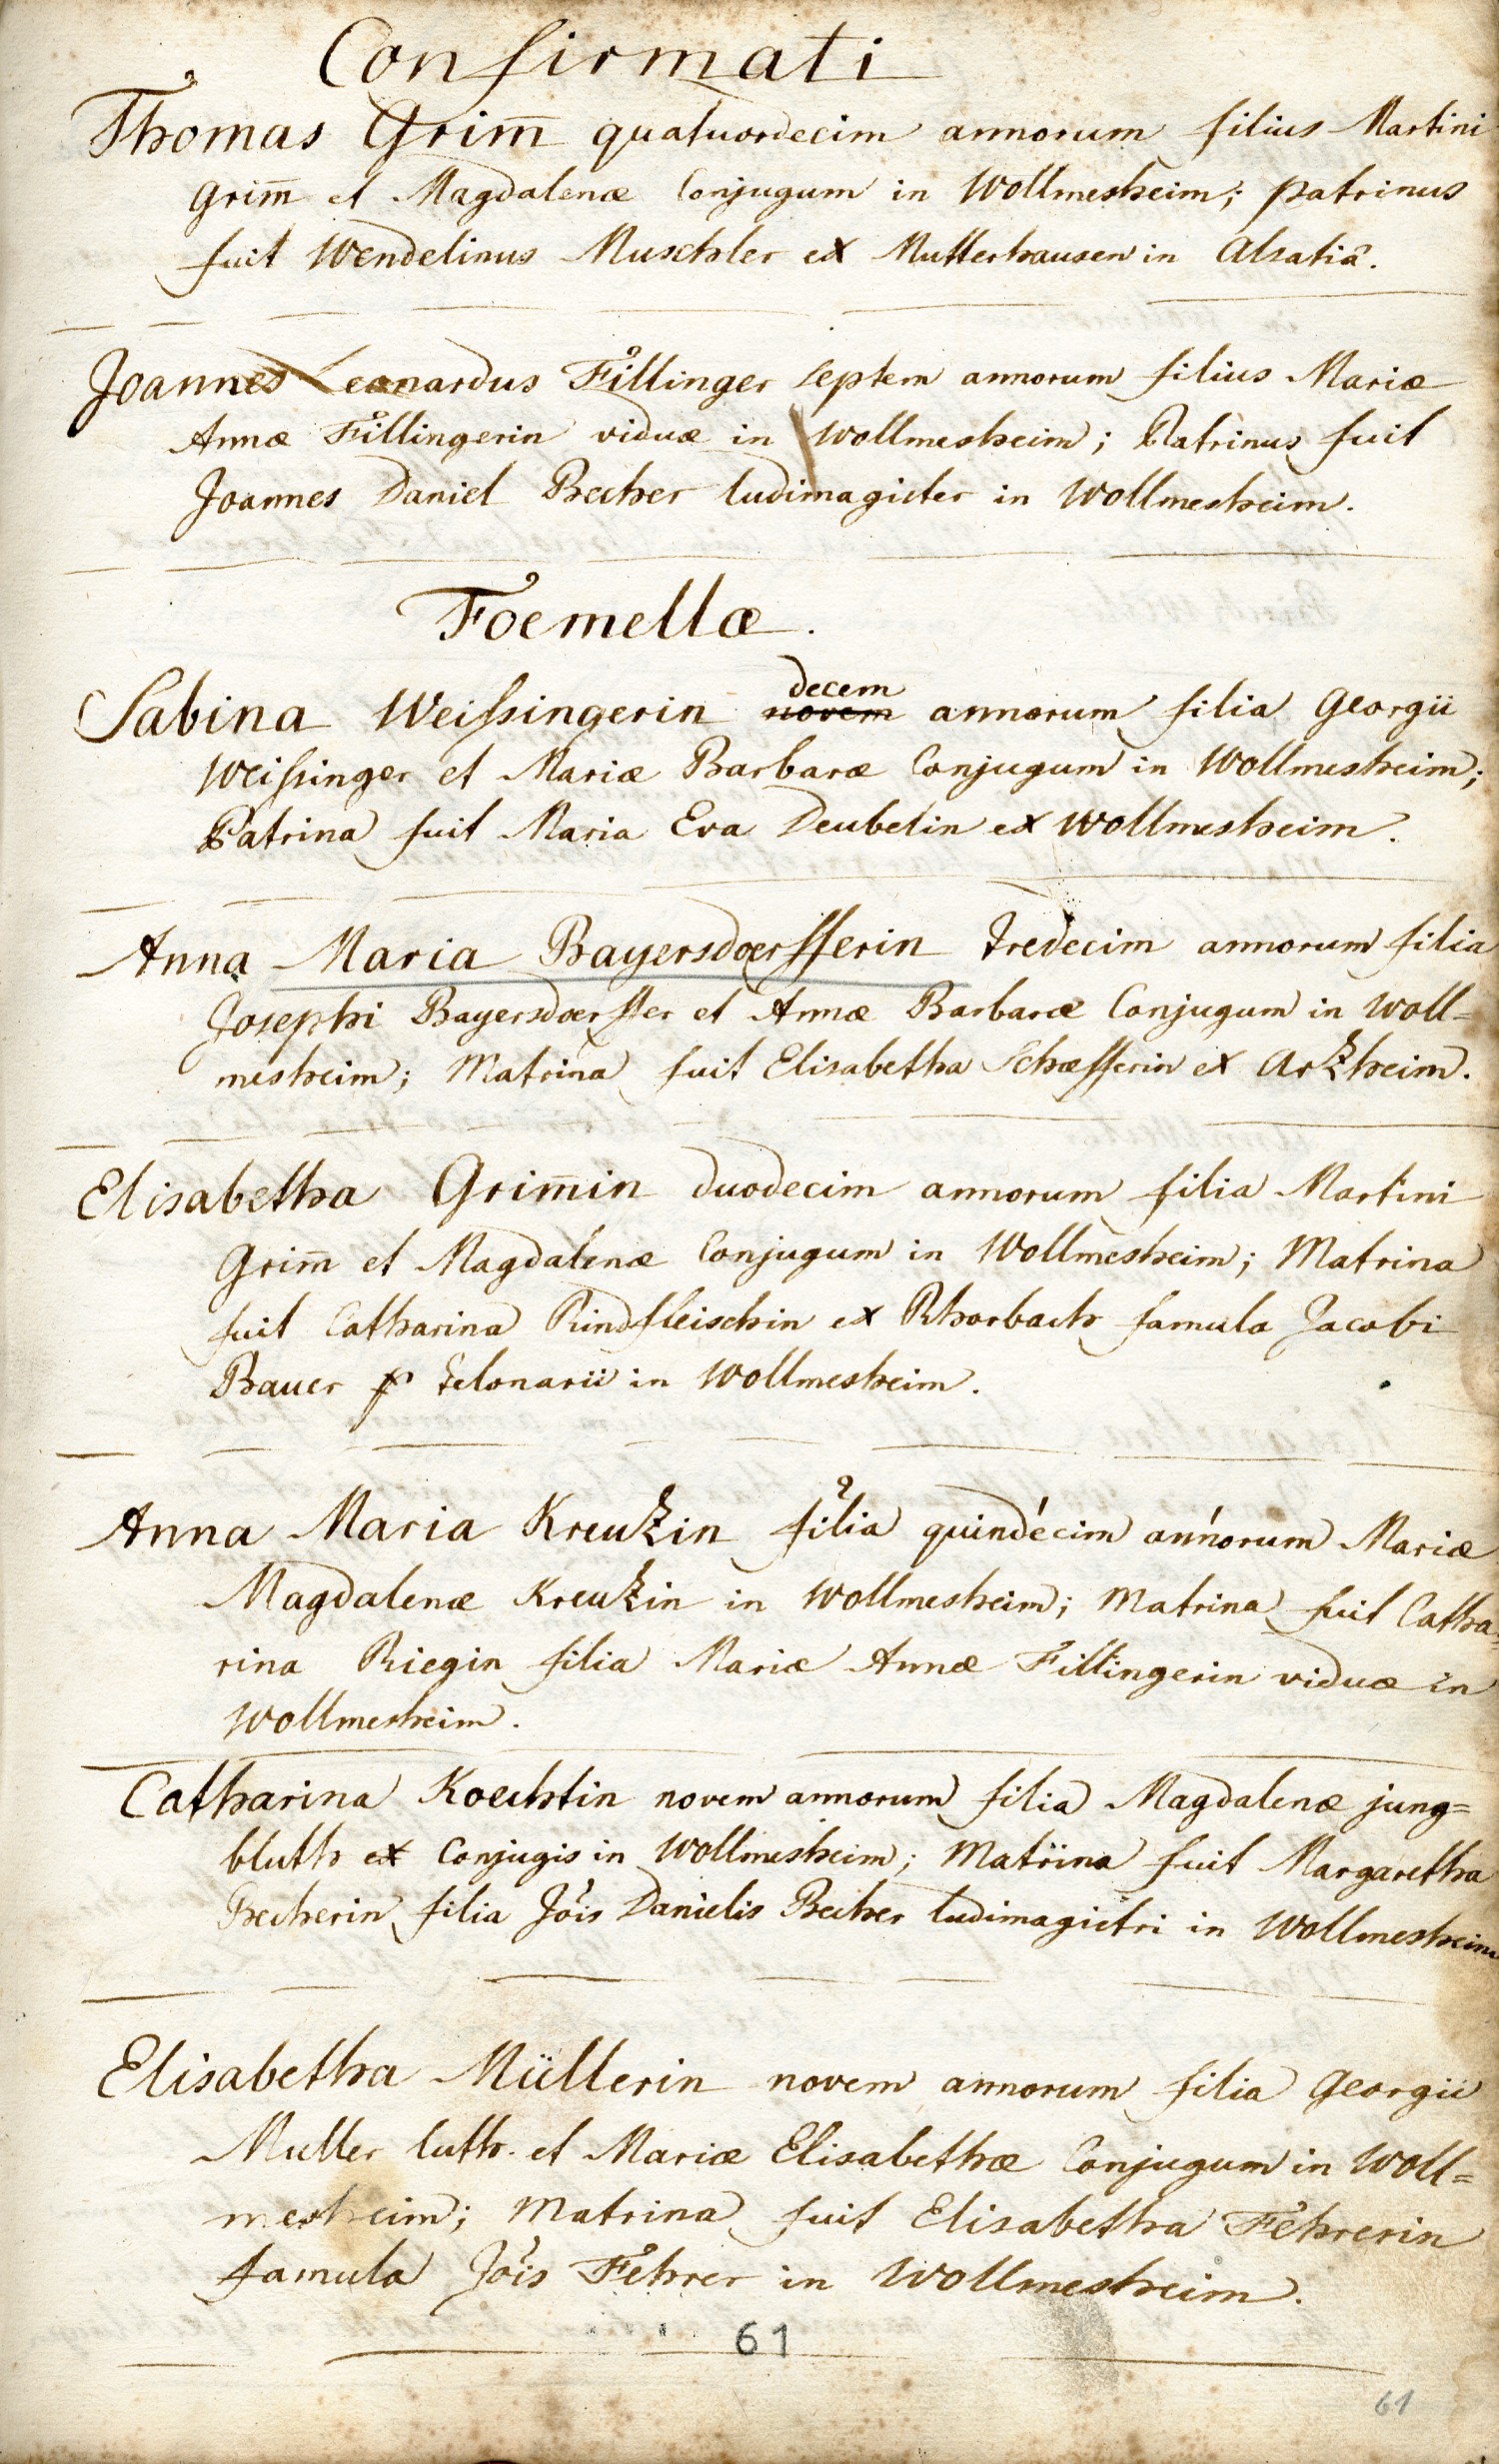 Confirmati
Thomas Grim̄ quatuordecim annorum filius Martini
Grim̄ et Magdalenæ Conjugum in Wollmesheim; patrinus
fuit Wendelinus Muschler ex Mutterhausen in Alsatiâ.
Joannes Leonardus Fillinger septem annorum filius Mariæ
Annæ Fillingerin viduæ in Wollmesheim; Patrinus fuit
Joannes Daniel Becher ludimagister in Wollmesheim.
Foemellæ.
decem
Sabina Weißingerin novem annorum filia Georgii
Weißinger et Mariæ Barbaræ Conjugum in Wollmesheim;
Patrina fuit Maria Eva Deubelin ex Wollmesheim.
Anna Maria Bayersdoerfferin tredecim annorum filia
Josephi Bayersdoerffer et Annæ Barbaræ Conjugum in Woll=
mesheim; Matrina fuit Elisabetha Schæfferin ex Artzheim.
Elisabetha Grim̄in duodecim annorum filia Martini
Grim̄ et Magdalenæ Conjugum in Wollmesheim; Matrina
fuit Catharina Rindfleischin ex Rhorbach famula Jacobi
Bauer telonarii in Wollmesheim.
Anna Maria Kreutzin filia quindécim ánnorum Mariæ
Magdalenæ Kreutzin in Wollmesheim; Matrina fuit Catha=
rina Riegin filia Mariæ Annæ Fillingerin viduæ in
Wollmesheim.
Catharina Koechtin novem annorum filia Magdalenæ jung=
bluth ex Conjugis in Wollmesheim; Matrina fuit Margaretha
Becherin filia Jois Danielis Becher ludimagistri in Wollmesheim
Elisabetha Müllerin novem annorum filia Georgii
Muller luth. et Mariæ Elisabethæ Conjugum in Woll=
mesheim; Matrina fuit Elisabetha Fehrerin
famula Jois Fehrer in Wollmesheim.
61
61